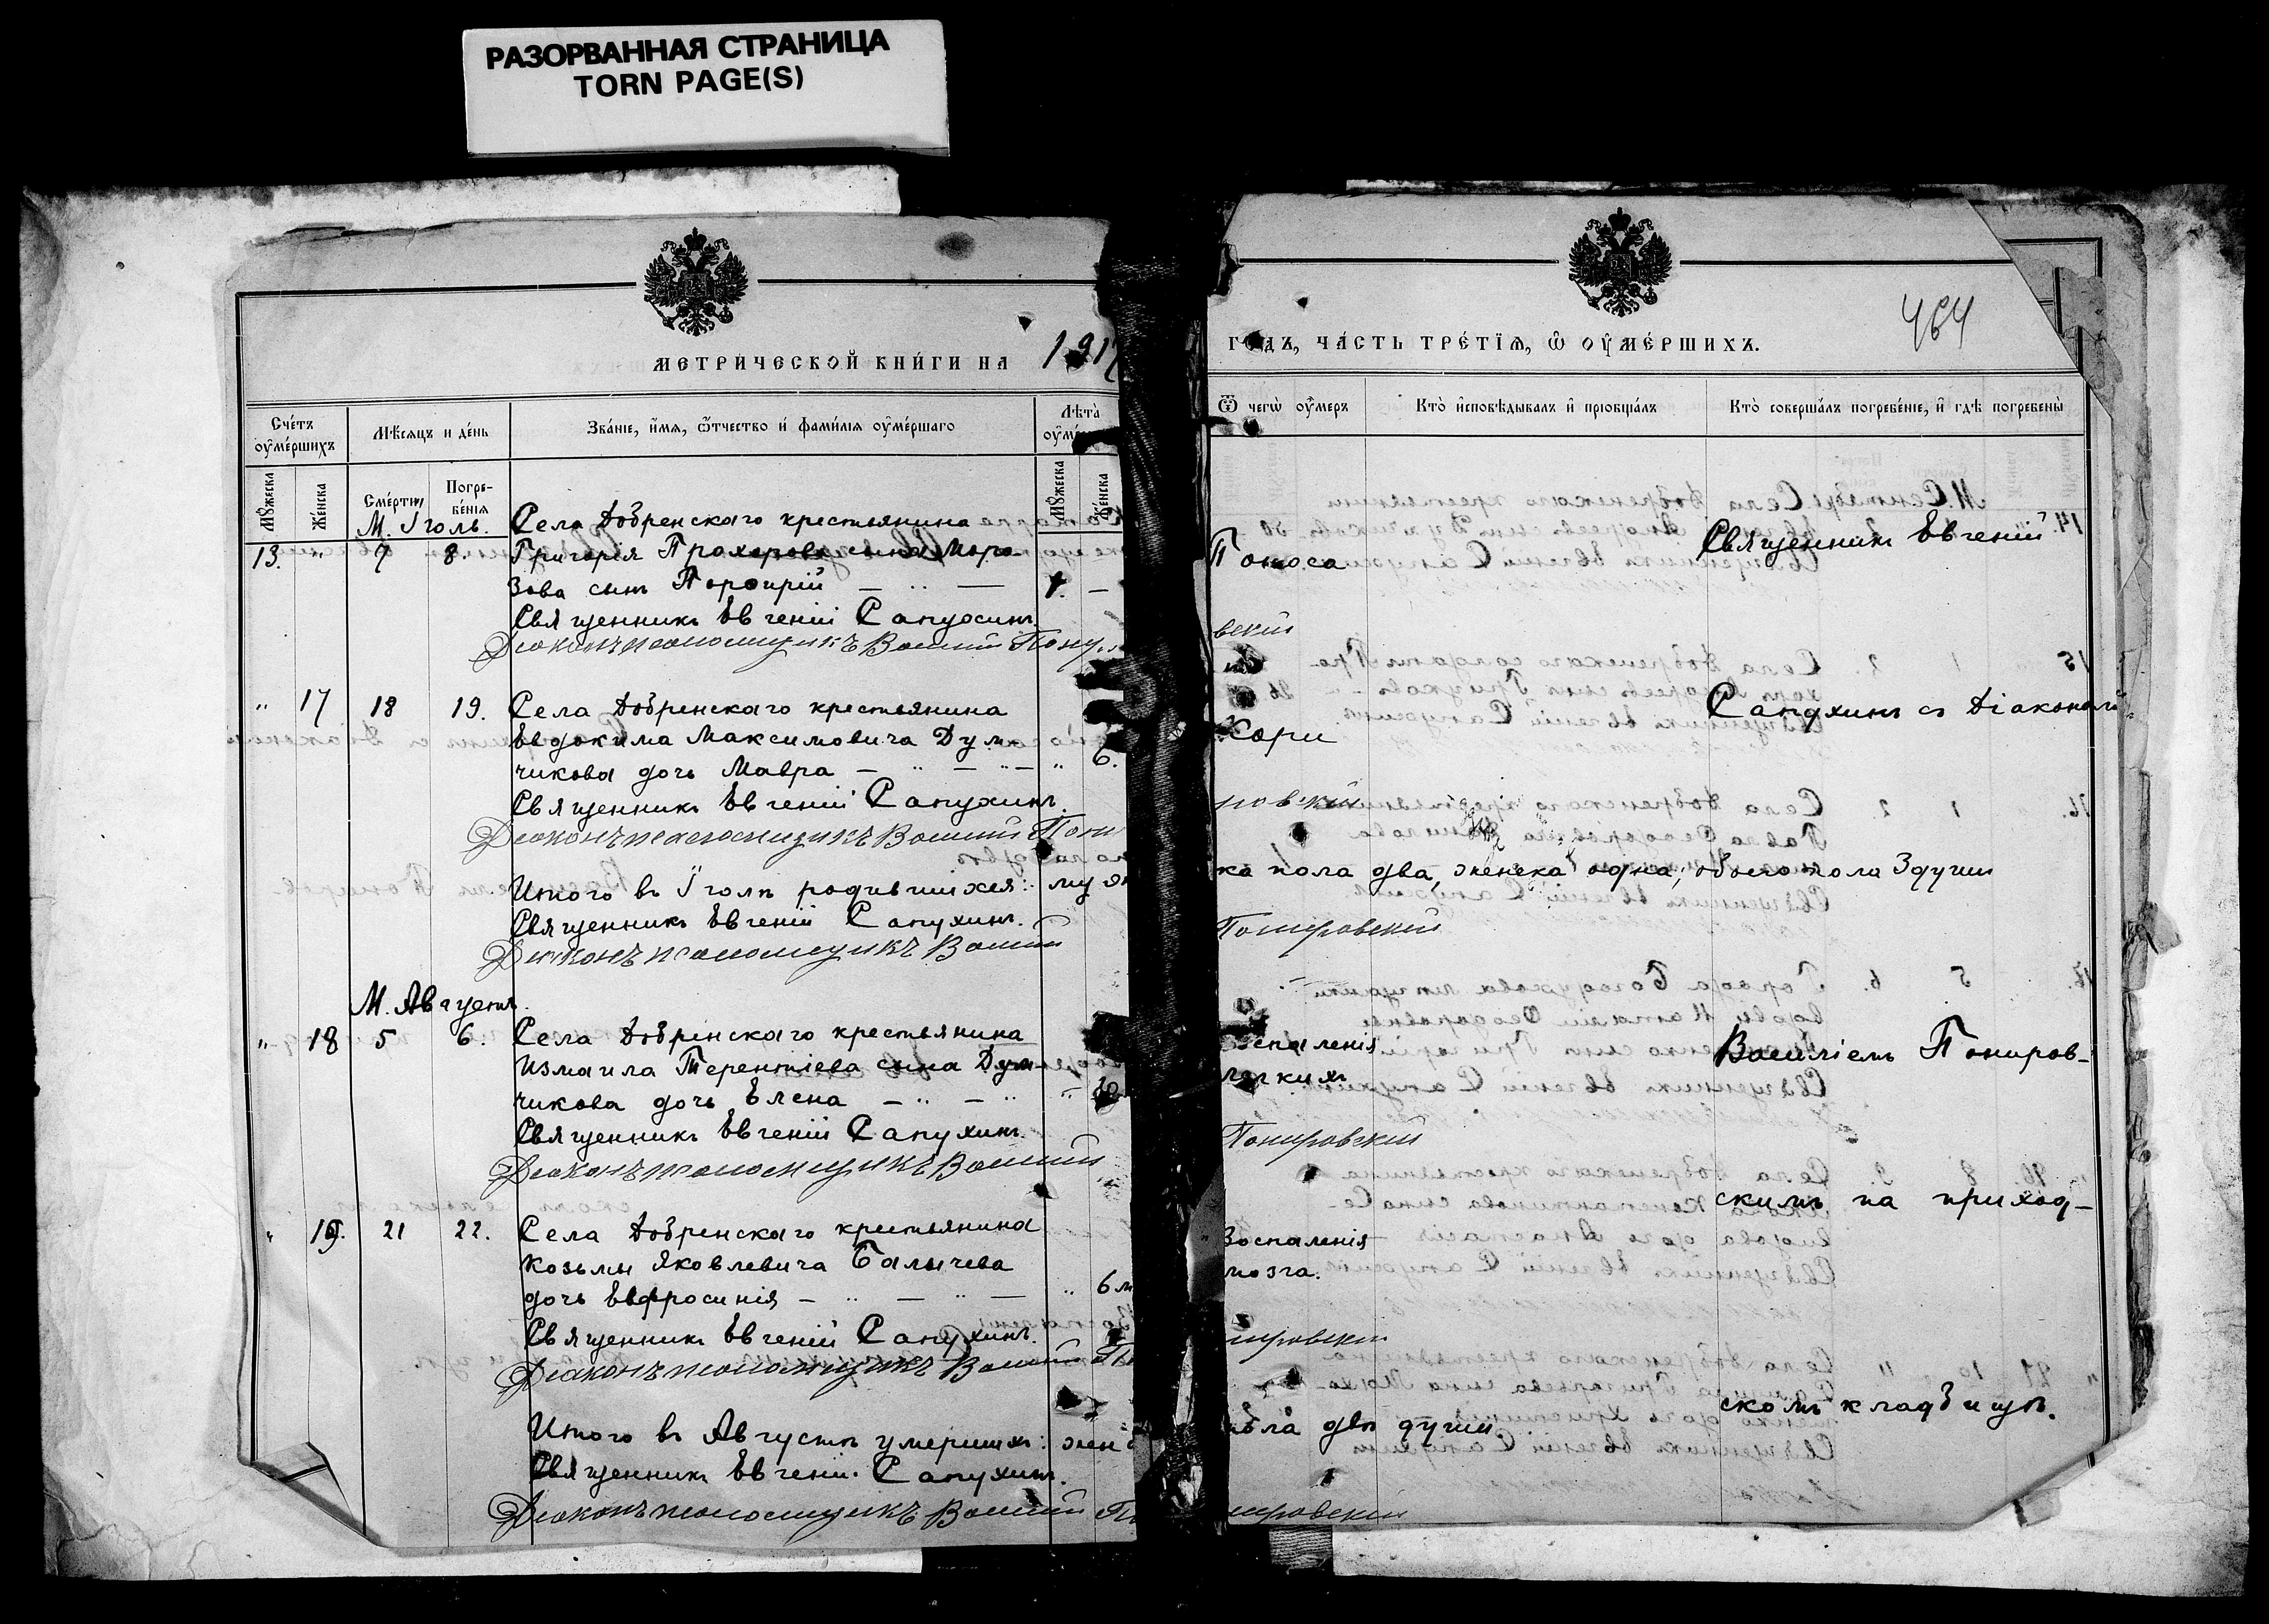 РАЗОРВАННАЯ СТРАНИЦА
TORN PAGE(S)
МЕТРИЧЕСКОЙ КНИГИ НА 1917
Счетъ оумершихъ
Мѣсяцъ и день
Званіе, имя, отчество и фамилія оумершаго
Лѣта
Мужеска
Женска
Смерти
Погребенія
Мужеска
Женска
М. Іюль.
Села Добренскаго крестьянина
13. " 7 8. Григорія Прохорова сына Моро
зова сынъ Порфирій — " —
Священникъ Евгеній Сапухинъ.
Діаконъ псаломщикъ Василій
" 17 18 19. Села Добренскаго крестьянина
Евдокима Максимовича Дум
чикова дочь Мавра — " — " — " 6.
Священникъ Евгеній Сапухинъ.
Діаконъ псаломщикъ Василій
Итого въ Іюлѣ родившихся: муж
Священникъ Евгеній Сапухинъ.
Діаконъ псаломщикъ Василій
М. Августъ.
" 18 5 6. Села Добренскаго крестьянина
Измаила Терентіева сына Дум-
чикова дочь Елена — " — "
Священникъ Евгеній Сапухинъ.
Діаконъ псаломщикъ Василій
" 19. 21 22. Села Добренскаго крестьянина
Козьмы Яковлевича Балычева
дочь Евфросинія — " — " — " 6 м
Священникъ Евгеній Сапухинъ.
Діаконъ псаломщикъ Василій
Итого въ Августѣ умершихъ: жен
Священникъ Евгеній Сапухинъ.
Діаконъ псаломщикъ Василій
464
ГОДЪ, ЧАСТЬ ТРЕТІЯ, Ѿ ОУМЕРШИХЪ.
Ѿ чегѡ оумеръ
Кто исповѣдывалъ и пріобщалъ
Кто совершалъ погребеніе, и гдѣ погребены
Поноса
Священникъ Евгеній
вскій
Сапухинъ съ Діакономъ
Кори
ровскій
ка пола два, женска одна, обоего пола 3 души
Понировскій
спаленія
Василіемъ Пониров-
легкихъ
Понировскій
скимъ на приход-
Воспаленія
мозга.
ировскій
скомъ кладбищѣ.
пола двѣ души
ировскій